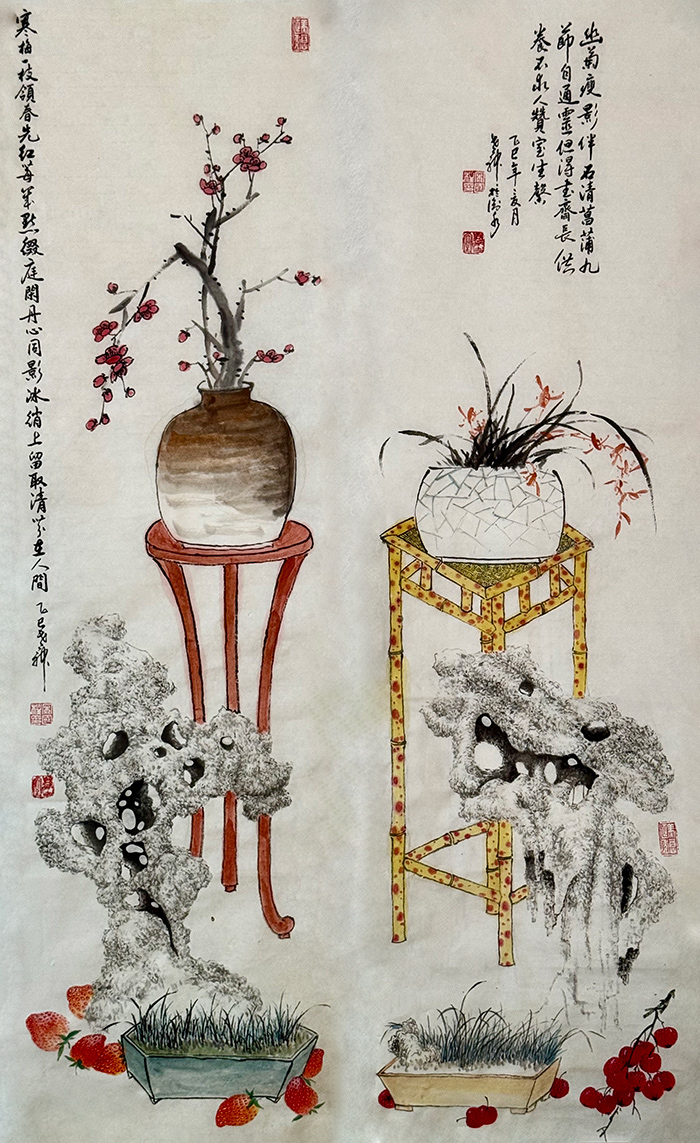 幽菊瘦影伴石清菖蒲九
節自通靈但得書齋長供
養不求人贊室生馨
乙巳年亥月
寒梅一枝領春先紅點綴庭閑丹心同影冰綃上留取清芬在人間 乙巳